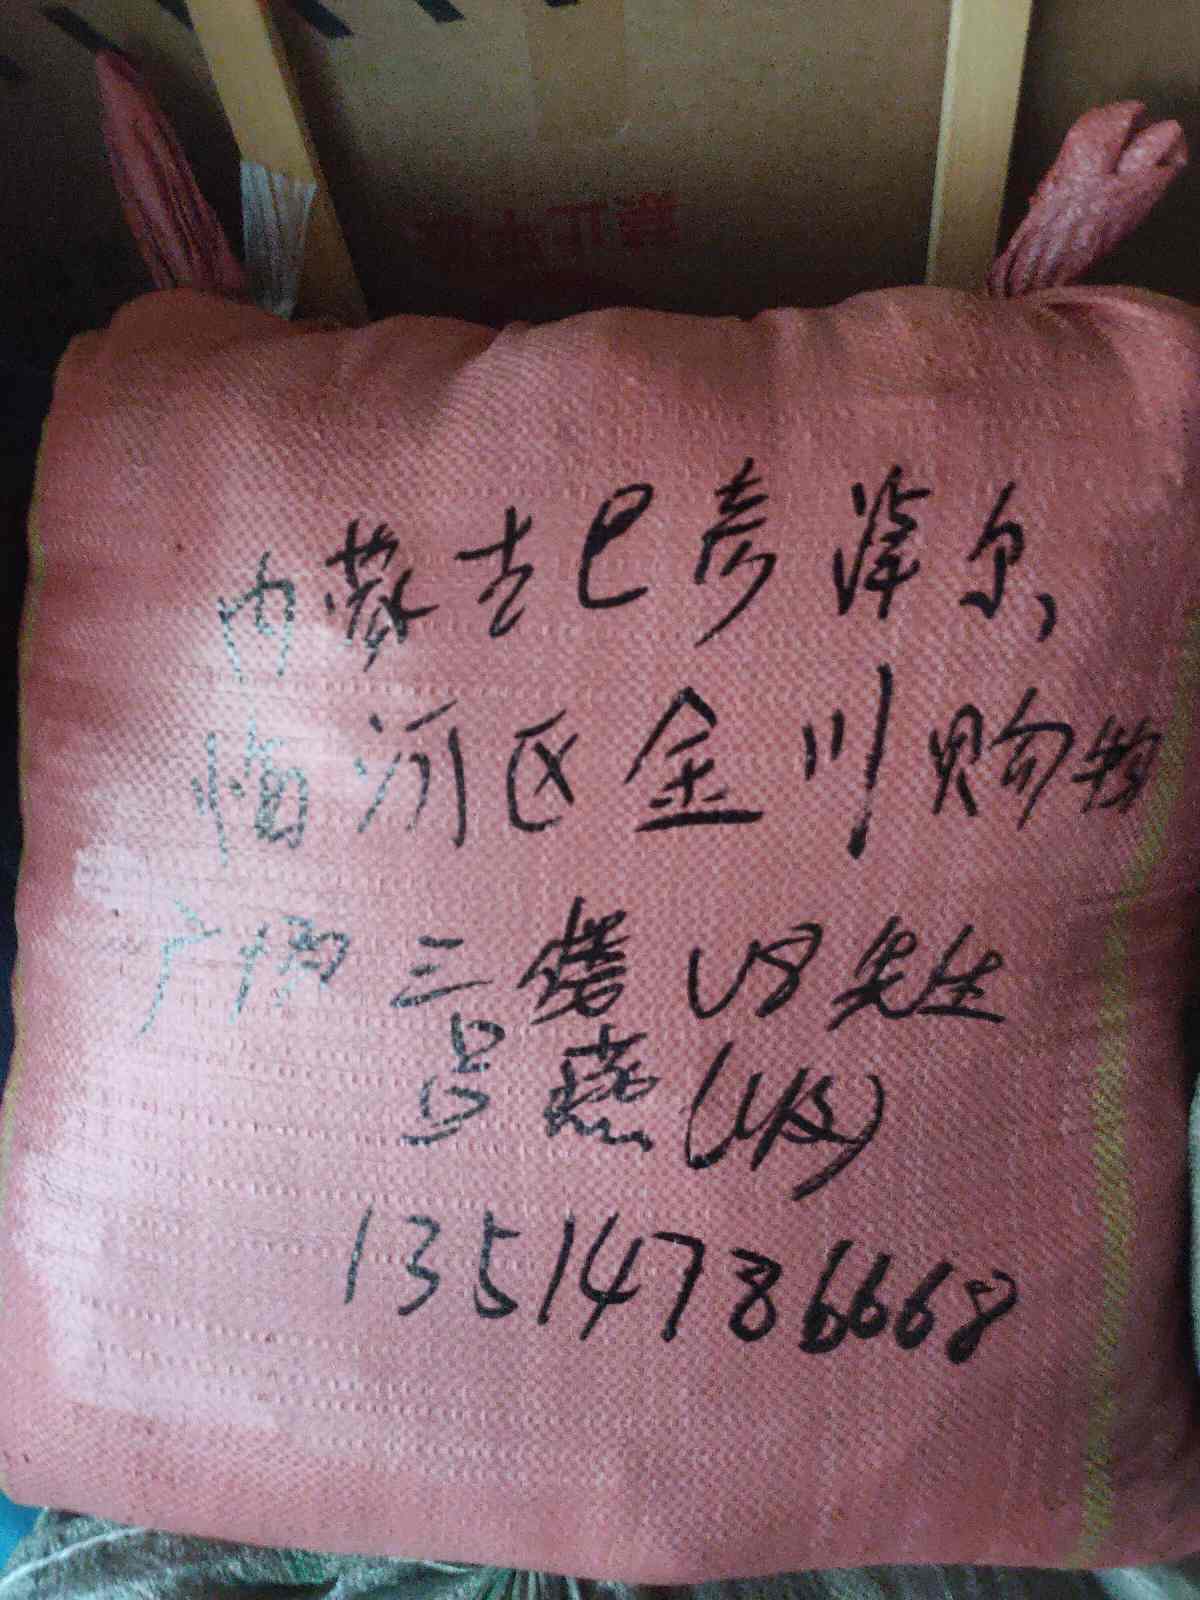 内蒙古巴彦淖尔
临河区金川购物
广场三楼 U8先生
吕燕(收)
13514786668